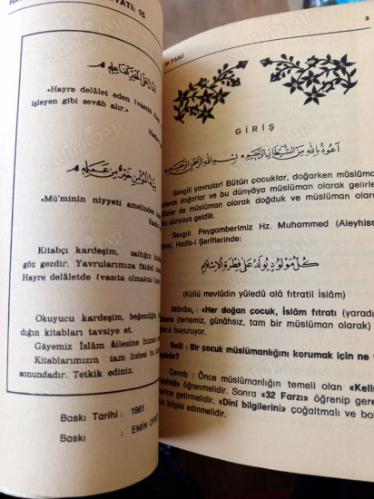 YATI: 15
«Hayre delâlet eden (vasıta
işleyen gibi sevâb alır.»
«Mü'minin niyyeti amelinden
Kitabçı kardeşim, sattığın
göz gezdir. Yavrularımıza fâidel
Hayre delâletde (vasıta olmakta)
Okuyucu kardeşim, beğendi
dığın kitabları tavsiye et.
Gâyemiz İslâm âilesine hizmet
Kitablarımızın tam listesi bu
sonundadır. Tetkik ediniz.
Baskı Tarihi : 1981
Baskı : EMİN
3
GİRİŞ
اعوذ بالله من الشيطان الرجيم بسم الله الرحمن الرحيم
Sevgili yavrular! Bütün çocuklar, doğarken müslüman
olarak doğarlar ve bu dünyâya müslüman olarak gelirler.
izler de müslüman olarak doğduk ve müslüman olarak
dünyaya geldik.
Sevgili Peygamberimiz Hz. Muhammed (Aleyhisse
Hadîs-i Şeriflerinde:
كل مولود يولد على فطرة الاسلام
(Küllü mevlûdin yûledü alâ fıtratil islâm)
Mânâsı: «Her doğan çocuk, İslâm fıtratı (yaradı
tertemiz, günâhsız, tam bir müslüman olarak)
buyuruyor.
: Bir çocuk müslümanlığını korumak için ne
Cevab : Önce müslümanlığın temeli olan
öğrenmelidir. Sonra «32 Farzı» öğrenip
getirmelidir. «Dinî bilgilerini» çoğaltmalı ve
bilgi edinmelidir.